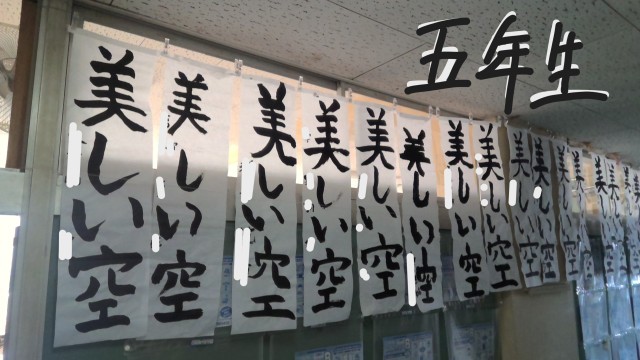 五年生
美しい空
美しい空
美しい空
美しい空
美しい空
美しい空
美しい空
美しい空
美しい空
美しい空
美しい空
美しい空